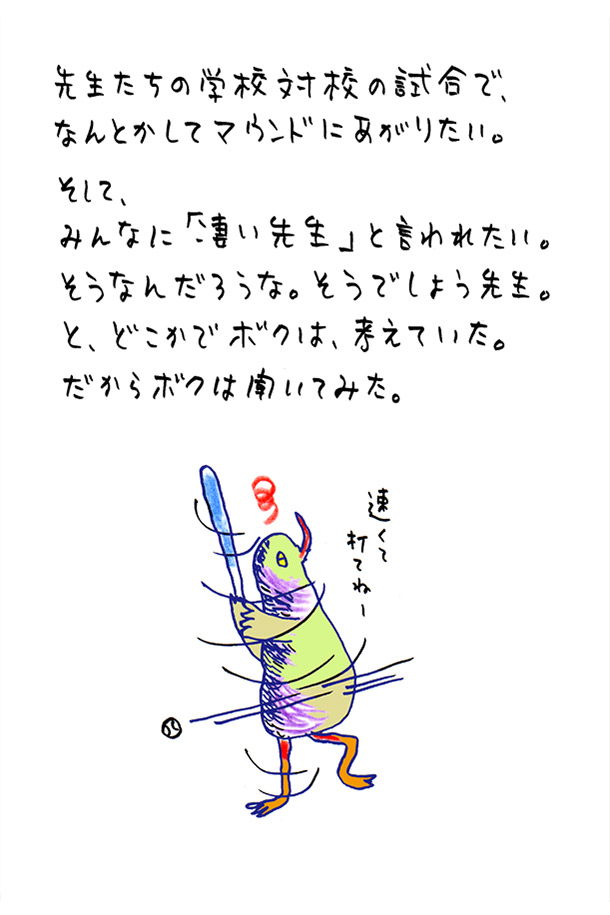 先生たちの学校対校の試合で、
なんとかしてマウンドにあがりたい。
そして、
みんなに「凄い先生」と言われたい。
そうなんだろうな。そうでしょう先生。
と、どこかでボクは、考えていた。
だからボクは聞いてみた。
速くて
打てねー